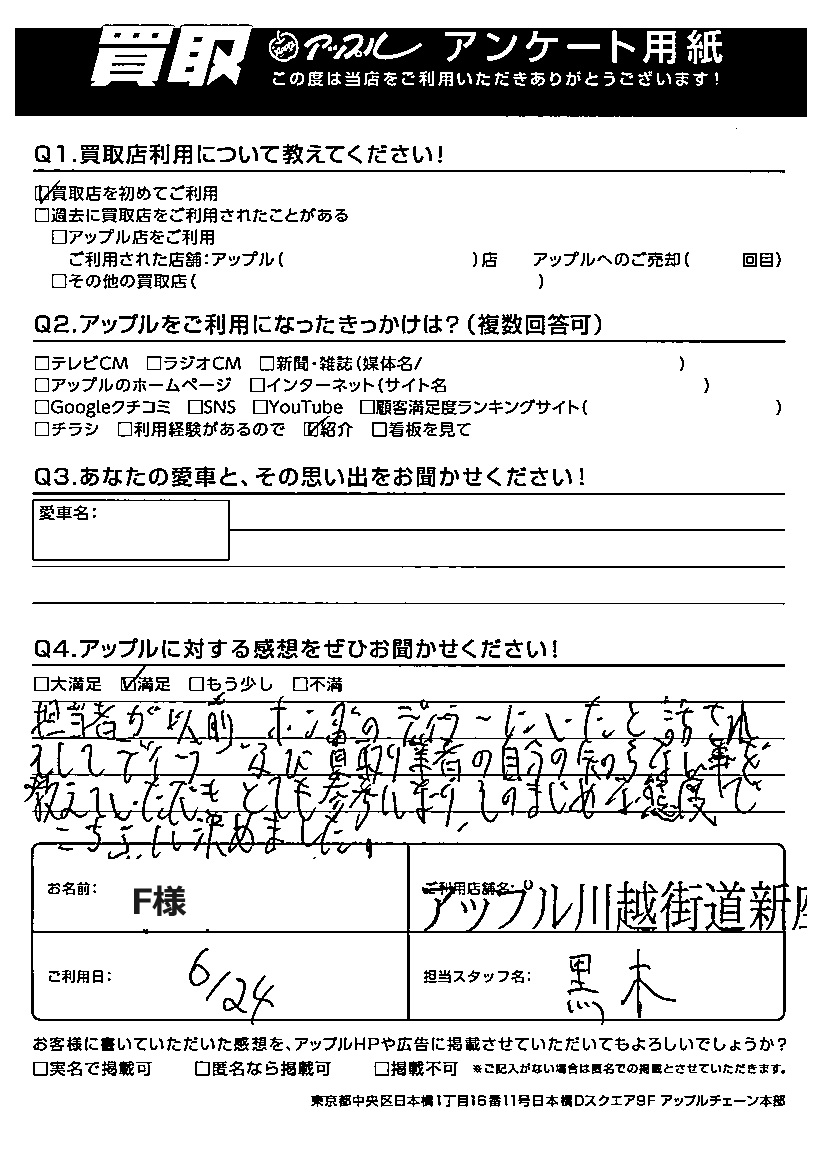 買取 アップル アンケート用紙
この度は当店をご利用いただきありがとうございます!
Q1.買取店利用について教えてください!
☑買取店を初めてご利用
□過去に買取店をご利用されたことがある
□アップル店をご利用
ご利用された店舗:アップル( )店 アップルへのご売却( 回目)
□その他の買取店( )
Q2.アップルをご利用になったきっかけは?(複数回答可)
□テレビCM □ラジオCM □新聞・雑誌(媒体名/ )
□アップルのホームページ □インターネット(サイト名 )
□Googleクチコミ □SNS □YouTube □顧客満足度ランキングサイト( )
□チラシ □利用経験があるので ☑紹介 □看板を見て
Q3.あなたの愛車と、その思い出をお聞かせください!
愛車名:
Q4.アップルに対する感想をぜひお聞かせください!
□大満足 ☑満足 □もう少し □不満
担当者が以前 ホンダのディーラーにいたと話され
そしてディーラー及び買取り業者の自分の知らない事を
教えていただき とても参考になり そのまじめな態度で
こちらに決めました。
お名前: F様
ご利用店舗名: アップル川越街道新座
ご利用日: 6/24
担当スタッフ名: 黒木
お客様に書いていただいた感想を、アップルHPや広告に掲載させていただいてもよろしいでしょうか?
□実名で掲載可 □匿名なら掲載可 □掲載不可 ※ご記入がない場合は匿名での掲載とさせていただきます。
東京都中央区日本橋1丁目16番11号日本橋Dスクエア9F アップルチェーン本部